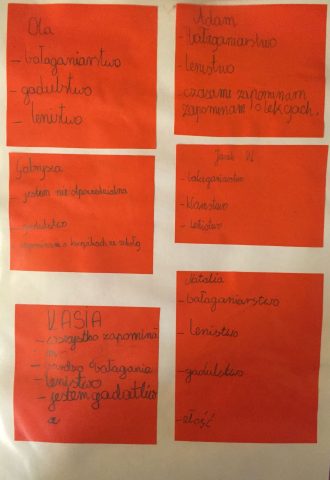 Ola
- bałaganiarstwo
- gadulstwo
- lenistwo
Adam
- bałaganiarstwo
- lenistwo
- czasami zapominam
zapominam o lekcjach.
Gabrysia
jestem nieodpowiedzialna
- gadulstwo
zapominam o książkach ze szkoły
Jacek W
- bałaganiarstwo
- lenistwo
KASIA
- wszystko zapomina
m
- bardzo bałagania
- lenistwo
- jestem gadatliw
a
Natalia
- bałaganiarstwo
- lenistwo
- gadulstwo
- złość